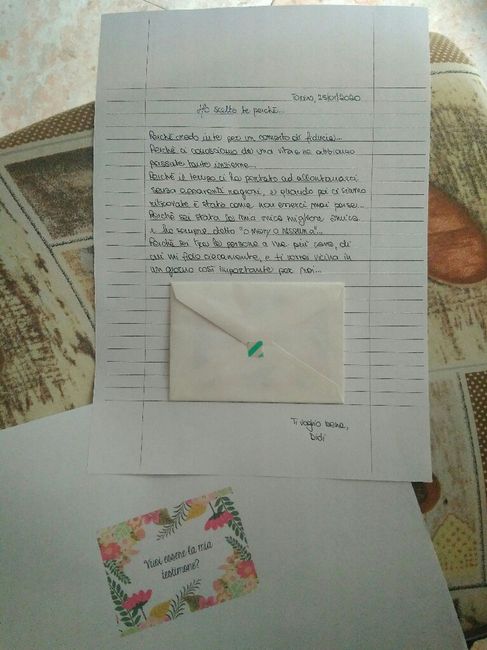 Torino, 25/01/2020
Ho scelto te perchè...
Perchè credo in te per un concetto di fiducia...
Perchè ci conosciamo da una vita e ne abbiamo
passate tante insieme...
Perchè il tempo ci ha portato ad allontanarci
senza apparenti ragioni, e quando poi ci siamo
ritrovate è stato come non esserci mai perse...
Perchè sei stata la mia migliore amica
e ho sempre detto "o Mery o nessuna"...
Perchè sei tra le persone a me più care, di
cui mi fido ciecamente, e ti vorrei vicina in
un giorno così importante per noi...
Ti voglio bene,
Didi
Vuoi essere la mia
testimone?